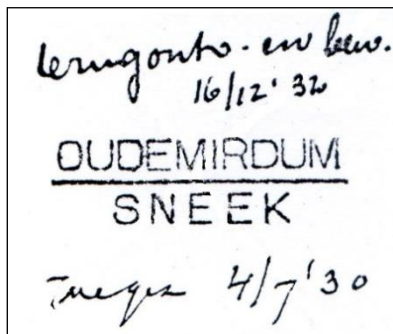 terugontv. en bew.
16/12' 32
OUDEMIRDUM
SNEEK
4/7'30